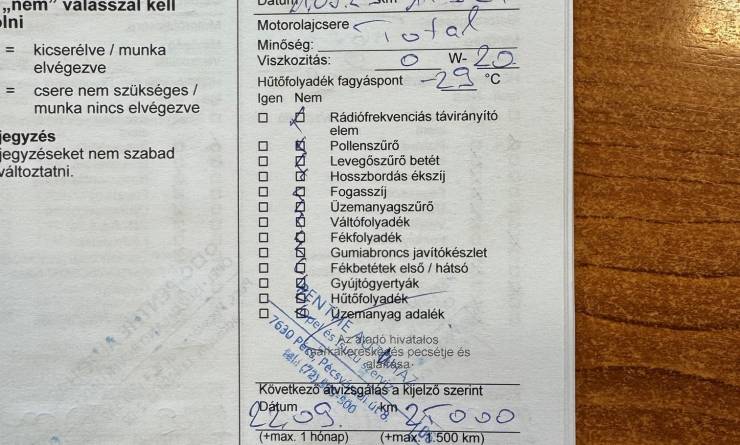 „nem" válasszal kell
olni
= kicserélve / munka
elvégezve
= csere nem szükséges /
munka nincs elvégezve
jegyzés
jegyzéseket nem szabad
változtatni.
Dátum
Motorolajcsere Total
Minőség:
Viszkozitás: 0 W- 20
Hűtőfolyadék fagyáspont -29 °C
Igen Nem
Rádiófrekvenciás távirányító
elem
Pollenszűrő
Levegőszűrő betét
Hosszbordás ékszíj
Fogasszíj
Üzemanyagszűrő
Váltófolyadék
Fékfolyadék
Gumiabroncs javítókészlet
Fékbetétek első / hátsó
Gyújtógyertyák
Hűtőfolyadék
Üzemanyag adalék
Az átadó hivatalos
márkakereskedés pecsétje és
aláírása
RENTME AUTÓHÁZ
Opel és Isuzu szerviz
7630 Pécs, Pécsváradi út 8.
Következő átvizsgálás a kijelző szerint
Dátum 22.09. km 25000
(+max. 1 hónap) (+max. 1.500 km)